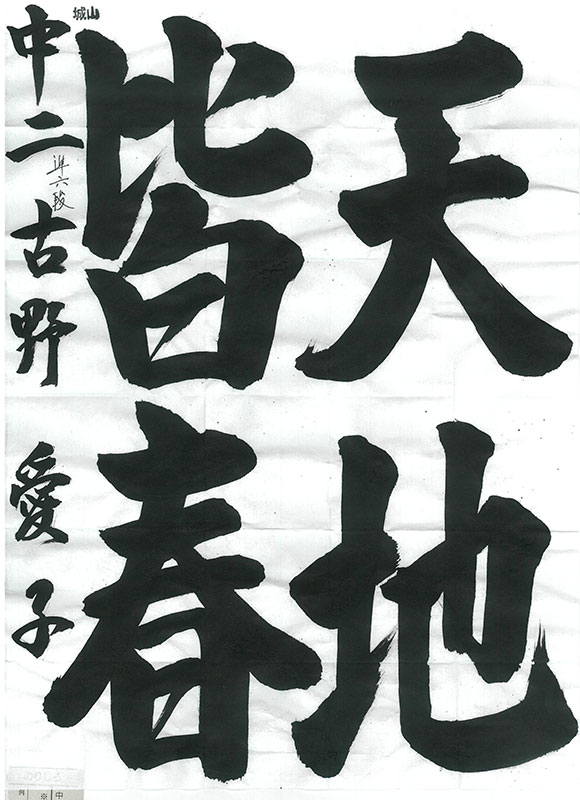 天地
皆春
中二 古野愛子
準六段
城山
中
※